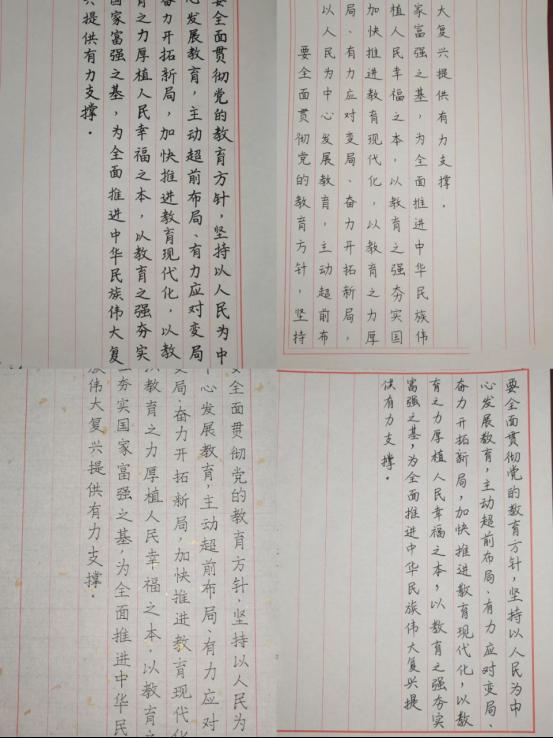 要全面贯彻党的教育方针，坚持以人民为中
心发展教育，主动超前布局、有力应对变局
奋力开拓新局，加快推进教育现代化，以教
育之力厚植人民幸福之本，以教育之强夯实
国家富强之基，为全面推进中华民族伟大复
兴提供有力支撑.
要全面贯彻党的教育方针，坚持
以人民为中心发展教育，主动超前布
局、有力应对变局、奋力开拓新局，
加快推进教育现代化，以教育之力厚
植人民幸福之本，以教育之强夯实国
家富强之基，为全面推进中华民族伟
大复兴提供有力支撑.
全面贯彻党的教育方针，坚持以人民为
中心发展教育，主动超前布局、有力应对
变局、奋力开拓新局，加快推进教育现代化
以教育之力厚植人民幸福之本，以教育之
夯实国家富强之基，为全面推进中华民
族伟大复兴提供有力支撑.
要全面贯彻党的教育方针，坚持以人民为中
心发展教育，主动超前布局、有力应对变局、
奋力开拓新局，加快推进教育现代化，以教
育之力厚植人民幸福之本，以教育之强夯实
富强之基，为全面推进中华民族伟大复兴提
供有力支撑.